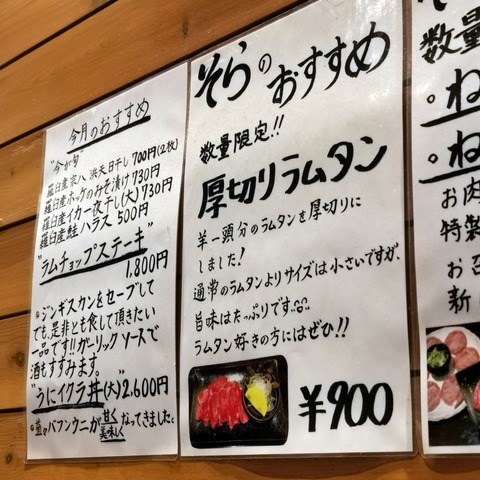 今月のおすすめ
"今が旬"
羅臼産宗八 浜天日干し 700円(2枚)
羅臼産ホッケのみそ漬け 730円
羅臼産イカ一夜干し(大) 730円
羅臼産鮭ハラス 500円
"ラムチョップステーキ"
1,800円
ジンギスカンをセーブして
でも、是非とも食して頂きたい
一品です!!ガーリックソースで
酒もすすみます。
"うにイクラ丼(大)" 2,600円
益々バフンウニが甘く美味しくなってきました。
そらのおすすめ
数量限定!!
厚切りラムタン
羊一頭分のラムタンを厚切りに
しました!
通常のラムタンよりサイズは小さいですが、
旨味はたっぷりです。
ラムタン好きの方にはぜひ!!
¥900
数量
。ね
。ね
お肉
特製
お召
新し